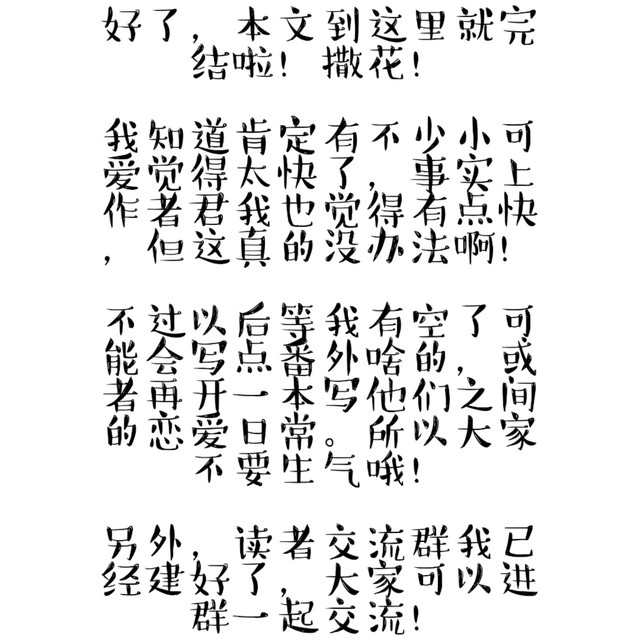 好了，本文到这里就完
结啦！撒花！
我知道肯定有不少小可
爱觉得太快了，事实上
作者君我也觉得有点快
，但这真的没办法啊！
不过以后等我有空了可
能会写点番外啥的，或
者再开一本写他们之间
的恋爱日常。所以大家
不要生气哦！
另外，读者交流群我已
经建好了，大家可以进
群一起交流！